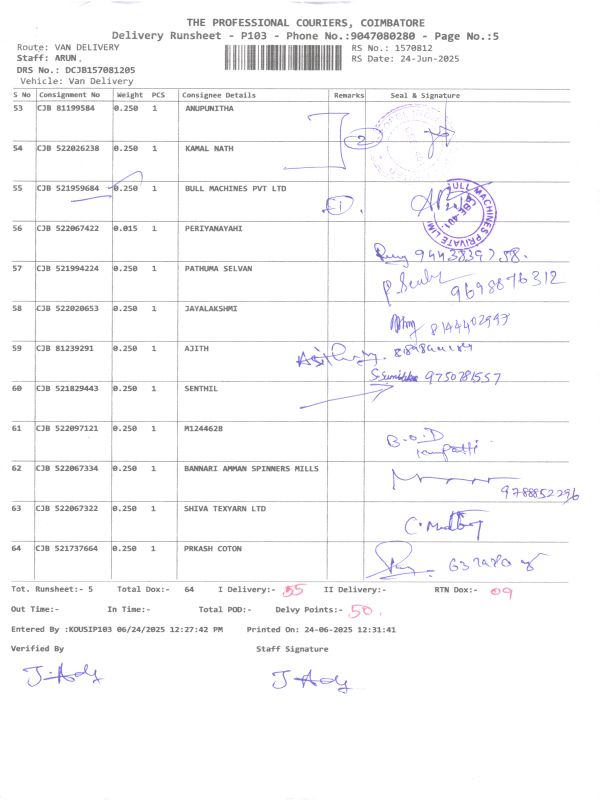 THE PROFESSIONAL COURIERS, COIMBATORE
Delivery Runsheet - P103 - Phone No.:9047080280 - Page No.:5
Route: VAN DELIVERY RS No.: 1570812
Staff: ARUN, RS Date: 24-Jun-2025
DRS No.: DCJB157081205
Vehicle: Van Delivery
S No Consignment No Weight PCS Consignee Details Remarks Seal & Signature
53 CJB 81199584 0.250 1 ANUPUNITHA
2
54 CJB 522026238 0.250 1 KAMAL NATH
55 CJB 521959684 0.250 1 BULL MACHINES PVT LTD
BULL MACHINES PRIVATE LIMI
56 CJB 522067422 0.015 1 PERIYANAYAHI
57 CJB 521994224 0.250 1 PATHUMA SELVAN
9698876312
58 CJB 522020653 0.250 1 JAYALAKSHMI
59 CJB 81239291 0.250 1 AJITH
9750781557
60 CJB 521829443 0.250 1 SENTHIL
61 CJB 522097121 0.250 1 M1244628
B.O.D
62 CJB 522067334 0.250 1 BANNARI AMMAN SPINNERS MILLS
9788852296
63 CJB 522067322 0.250 1 SHIVA TEXYARN LTD
64 CJB 521737664 0.250 1 PRKASH COTON
Tot. Runsheet:- 5 Total Dox:- 64 I Delivery:- 55 II Delivery:- RTN Dox:- 09
Out Time:- In Time:- Total POD:- Delvy Points:- 50.
Entered By :KOUSIP103 06/24/2025 12:27:42 PM Printed On: 24-06-2025 12:31:41
Verified By Staff Signature